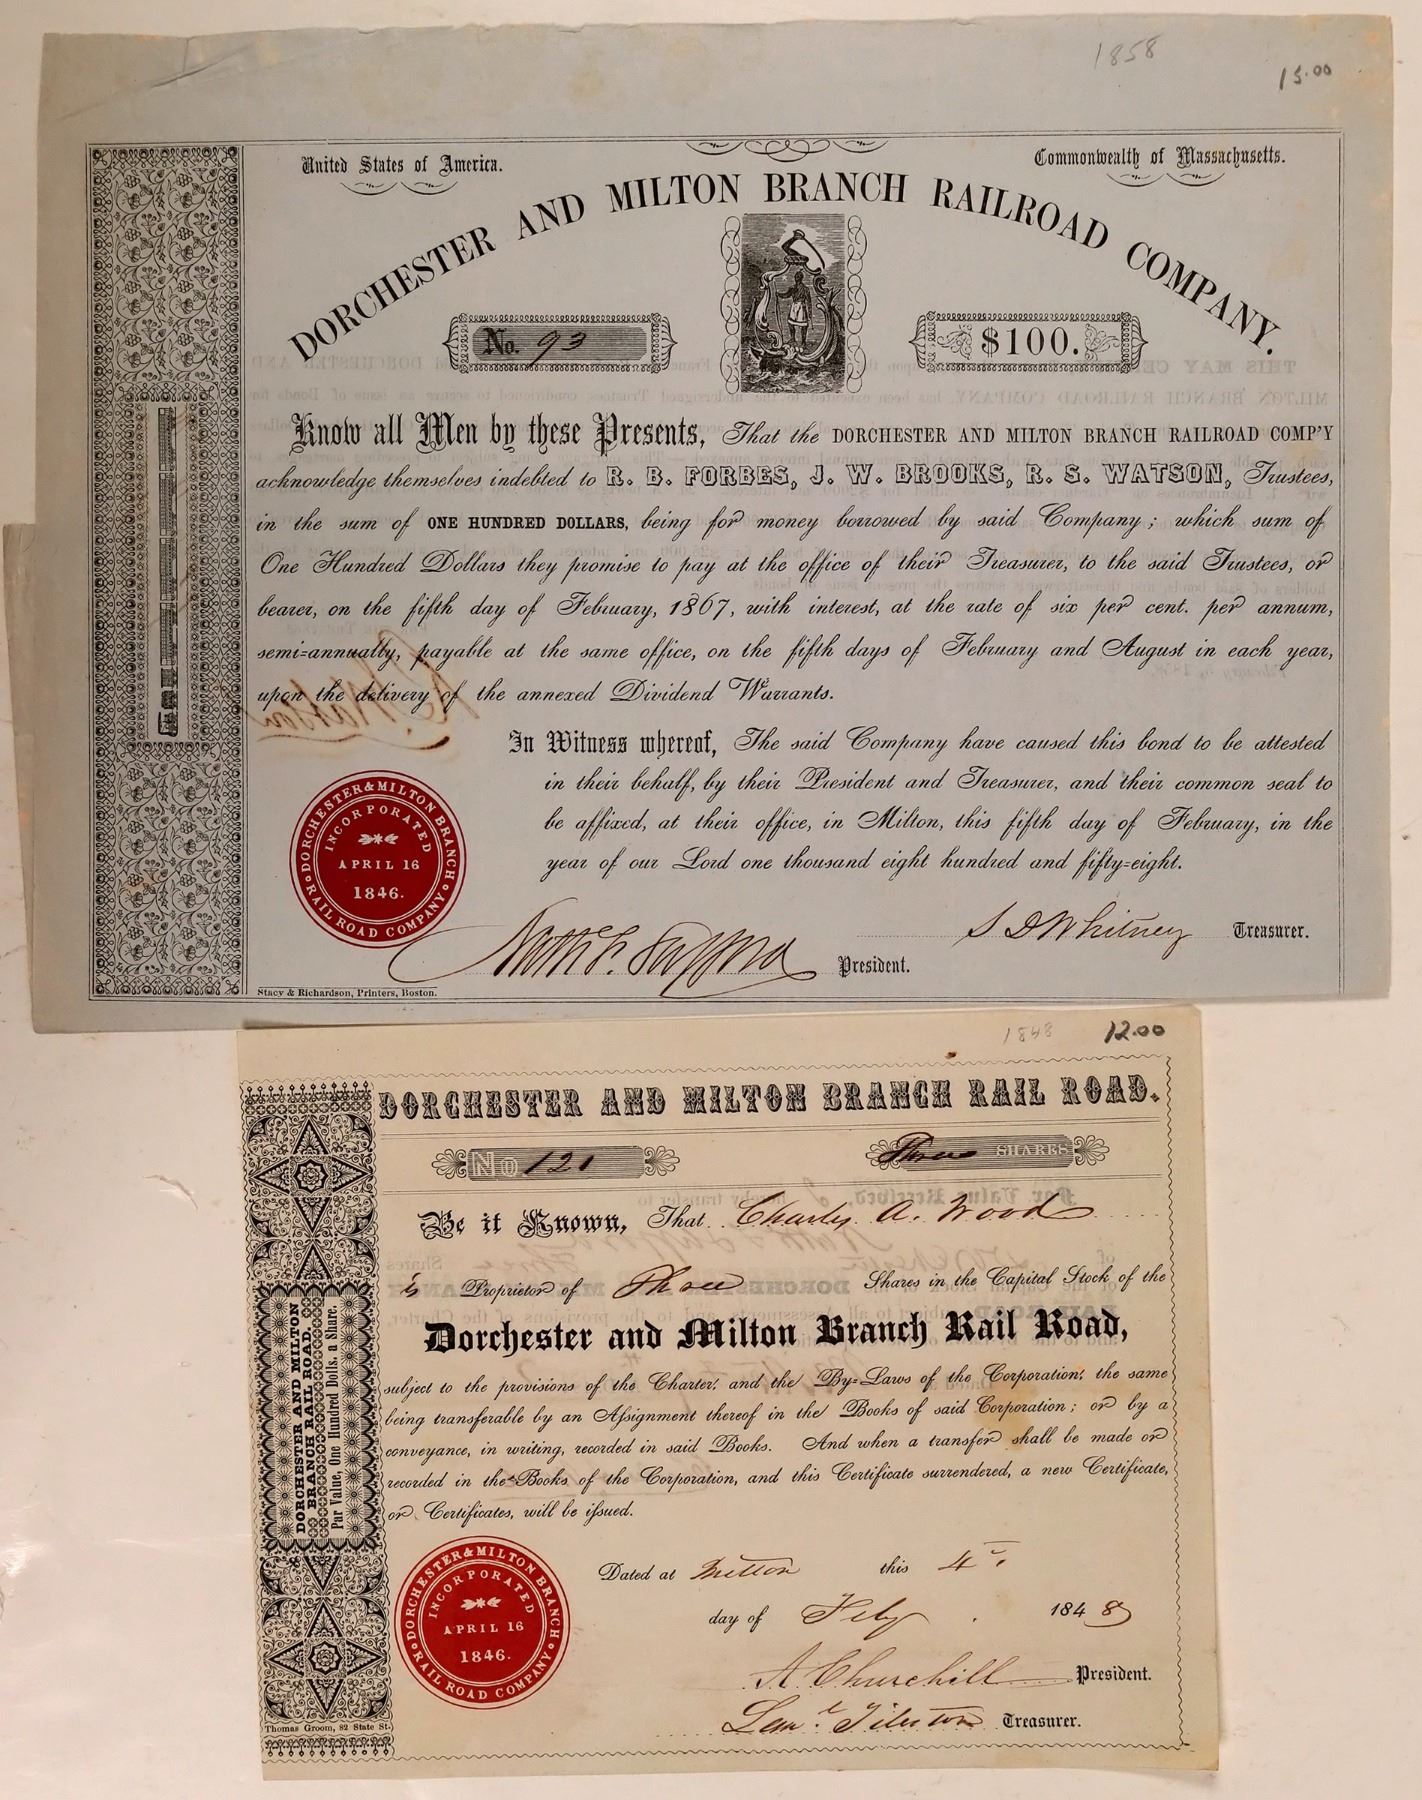 1858
15.00
United States of America.
Commonwealth of Massachusetts.
DORCHESTER AND MILTON BRANCH RAILROAD COMPANY.
No. 93
$100.
Know all Men by these Presents, That the DORCHESTER AND MILTON BRANCH RAILROAD COMP'Y
acknowledge themselves indebted to R. B. FORBES, J. W. BROOKS, R. S. WATSON, Trustees,
in the sum of ONE HUNDRED DOLLARS, being for money borrowed by said Company; which sum of
One Hundred Dollars they promise to pay at the office of their Treasurer, to the said Trustees, or
bearer, on the fifth day of February, 1867, with interest, at the rate of six per cent. per annum,
semi=annually, payable at the same office, on the fifth days of February and August in each year,
upon the delivery of the annexed Dividend Warrants.
In Witness whereof, The said Company have caused this bond to be attested
in their behalf, by their President and Treasurer, and their common seal to
be affixed, at their office, in Milton, this fifth day of February, in the
year of our Lord one thousand eight hundred and fifty=eight.
DORCHESTER & MILTON BRANCH
RAIL ROAD COMPANY
INCORPORATED
APRIL 16
1846.
S D Whitney Treasurer.
Nath F. Safford President.
Stacy & Richardson, Printers, Boston.
1848
12.00
DORCHESTER AND MILTON BRANCH RAIL ROAD.
No 121
Three SHARES
Be it Known, That Charles A. Wood
is Proprietor of Three Shares in the Capital Stock of the
Dorchester and Milton Branch Rail Road,
subject to the provisions of the Charter, and the By=Laws of the Corporation, the same
being transferable by an Assignment thereof in the Books of said Corporation; or by a
conveyance, in writing, recorded in said Books. And when a transfer shall be made or
recorded in the Books of the Corporation, and this Certificate surrendered, a new Certificate,
or Certificates, will be issued.
DORCHESTER AND MILTON
BRANCH RAIL ROAD.
Par Value, One Hundred Dolls. a Share.
Dated at Milton this 4th
day of Feby. 1848
DORCHESTER & MILTON BRANCH
RAIL ROAD COMPANY
INCORPORATED
APRIL 16
1846.
A Churchill President.
Leml Tileston Treasurer.
Thomas Groom, 82 State St.